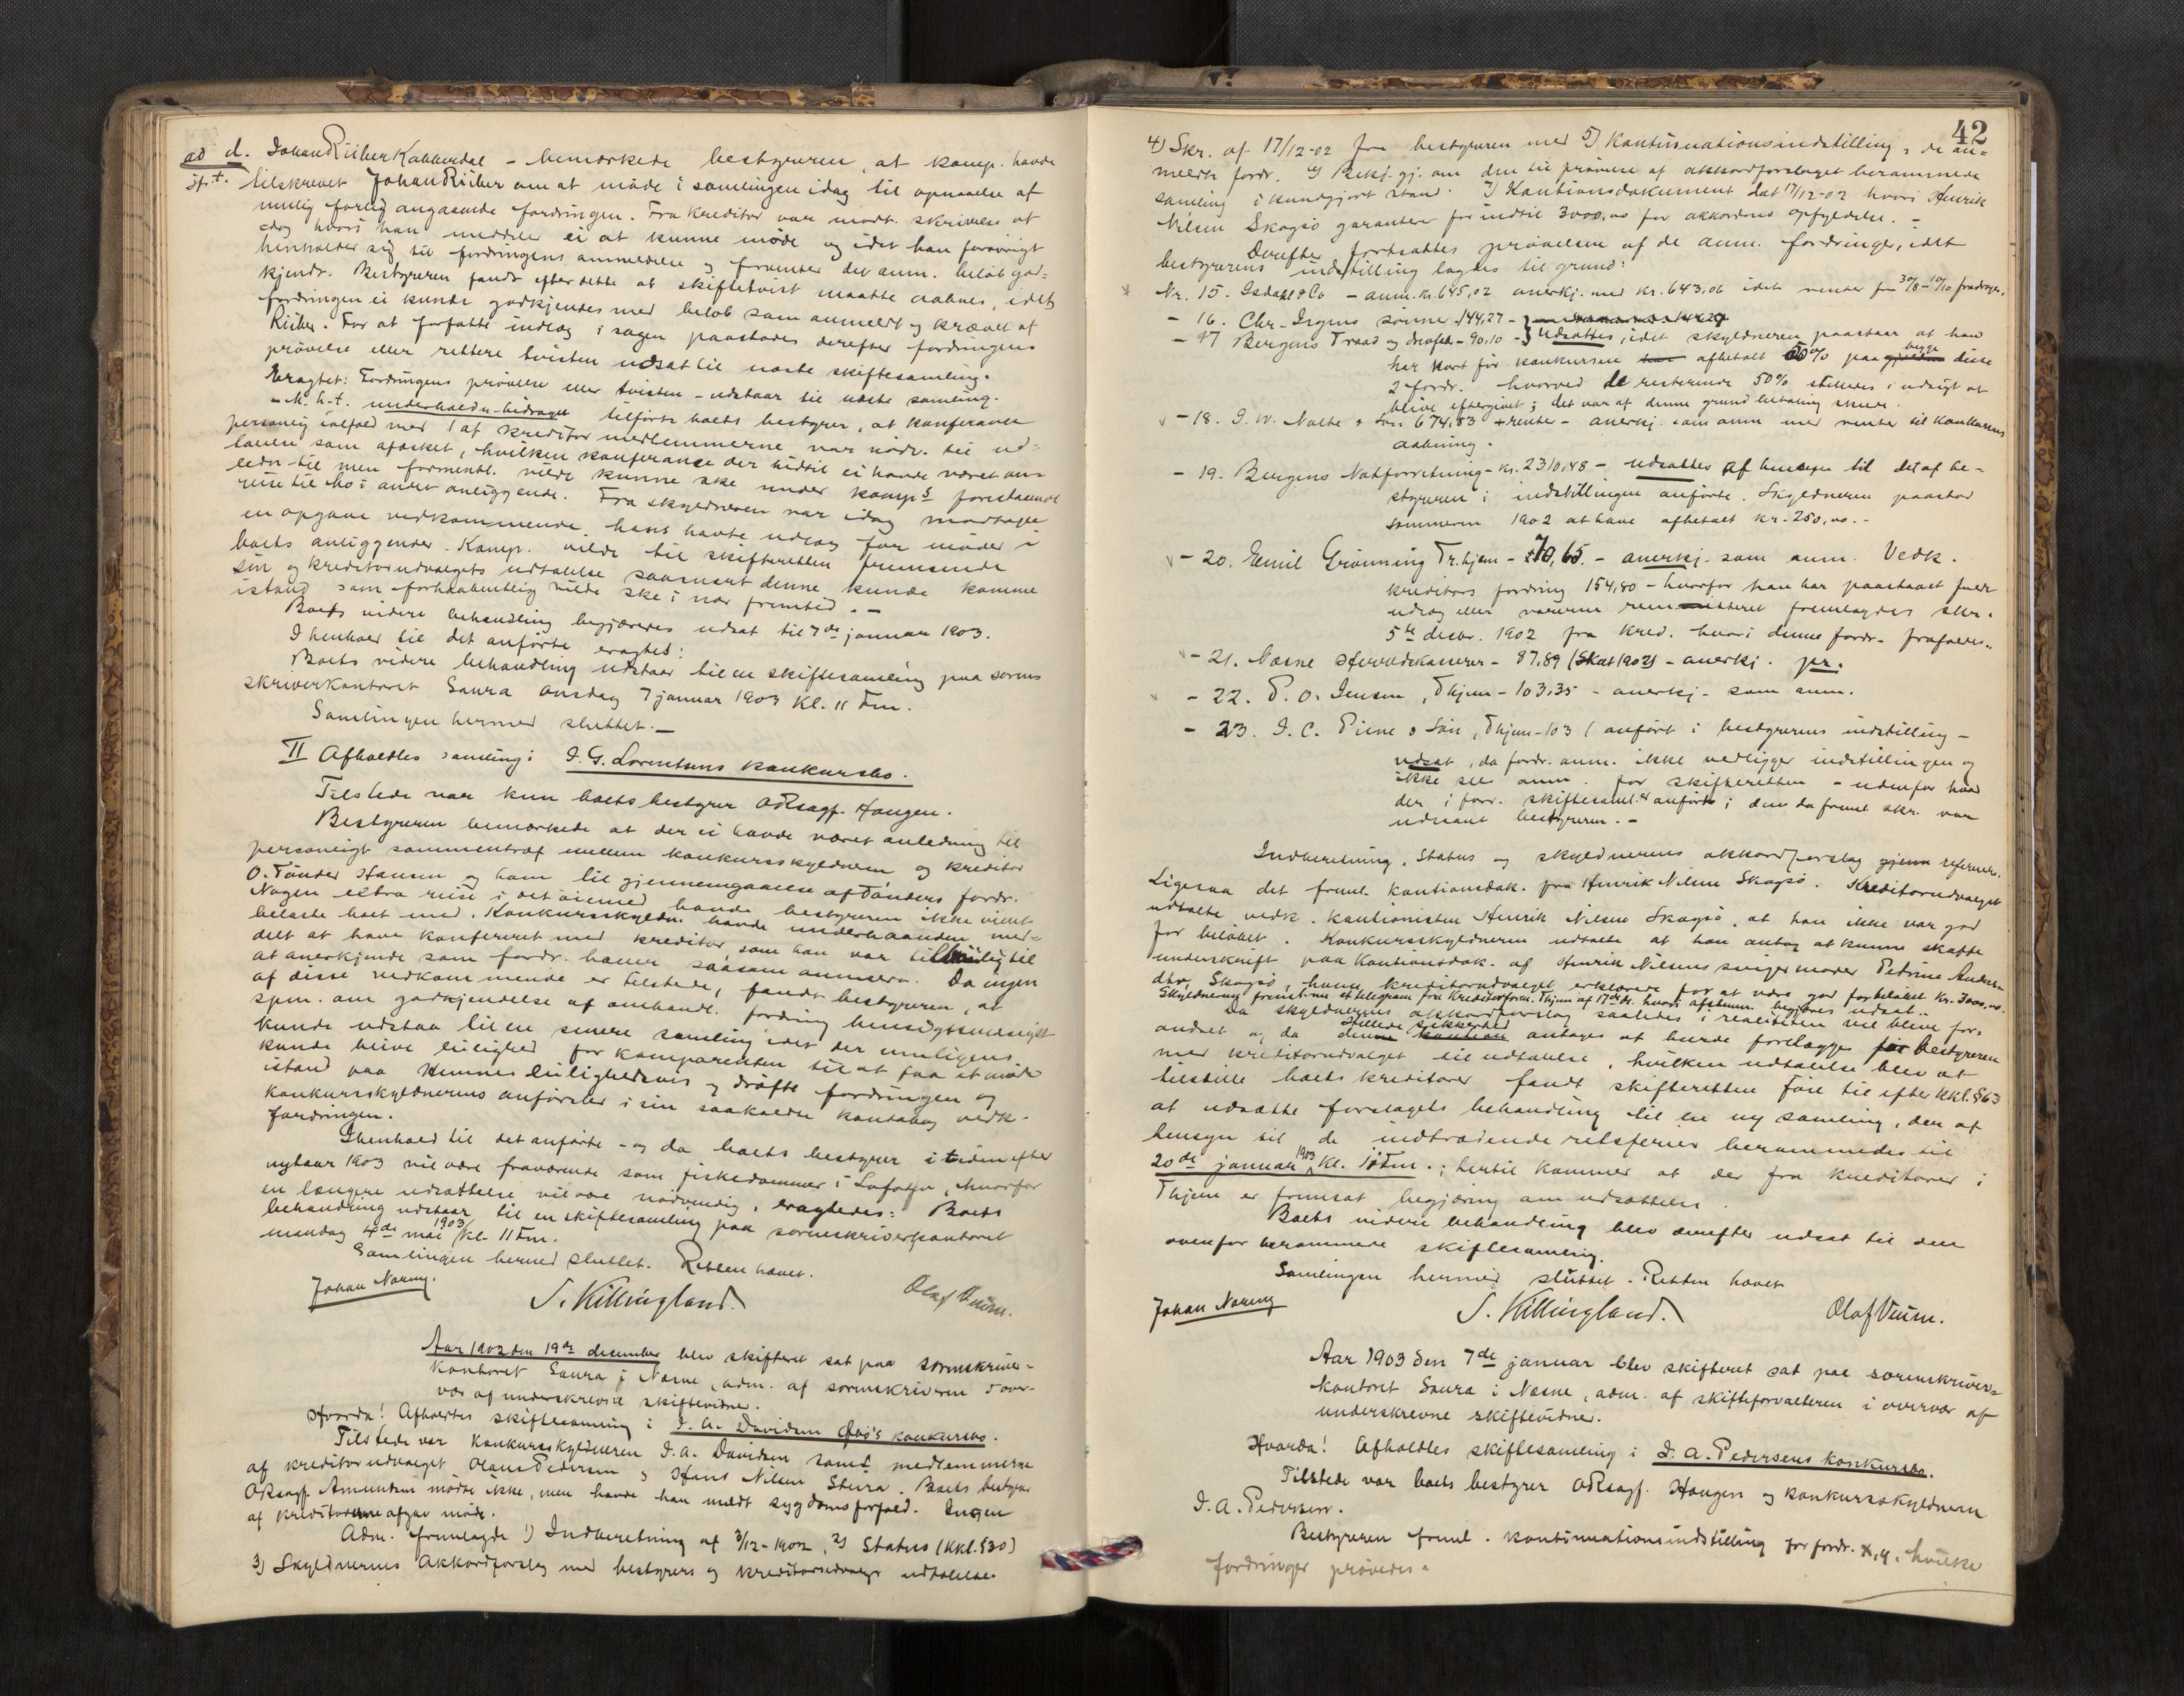 ad d. Johan Riiber Kabberdal - bemærkede bestyreren, at komp. havde
jfr. t. tilskrevet Johan Riiber om at møde i samlingen idag til opnaaelse af
mulig forlig angaaende fordringen. Fra kreditor var modt. skrivelse at
idag hvori han meddeler ei at kunne møde og idet han forøvrigt
henholder sig til fordringens anmeldelse og forventer det anm. beløb god-
kjendt. Bestyreren fandt efter dette at skiftetvist maatte aabnes, idet
fordringen ei kunde godkjendes med beløb som anmeldt og krævet af
Riiber. For at forfatte indlæg i sagen paastodes derefter fordringens
prøvelse eller rettere tvisten udsat til næste skiftesamling.
Eragtet: Fordringens prøvelse eller tvisten - udstaar til næste samling.
- m. h. t. underholds-bidraget tilførte boets bestyrer, at konferance
personlig ialfald med 1 af kreditor medlemmerne var nødv. til ud-
talelse som afæsket, hvilken konferance der hidtil ei havde været an-
ledn. til men formentl. vilde kunne ske under komps forestaaende
reise til Mo i andet anliggende. Fra skyldneren var idag modtaget
en opgave vedkommende hans havte udlæg for møder i
boets anliggender. Komp. vilde til skifteretten fremsende
sin og kreditorudvalgets udtalelse saasnart denne kunde komme
istand som forhaabentlig vilde ske i nær fremtid. -
Boets videre behandling begjæredes udsat til 7de januar 1903.
I henhold til det anførte eragtet:
Boets videre behandling udstaar til en skiftesamling paa soren-
skriverkontoret Saura onsdag 7 januar 1903 kl. 11 Fm.
Samlingen hermed sluttet. -
II Afholdtes samling i I. G. Lorentsens konkursbo.
Tilstede var kun boets bestyrer ORsagf. Haugen.
Bestyreren bemærkede at der ei havde været anledning til
personligt sammentræf mellem konkursskyldneren og kreditor
O. Tønder Hansen og ham til gjennemgaaelse af Tønders fordr.
Nogen extra reise i det øiemed havde bestyreren ikke villet
belaste boet med. Konkursskyldn. havde underhaanden med-
delt at have konfereret med kreditor, som han var tilbøielig til
at anerkjende som fordr. haver saasom anmeldt. Da ingen
af disse vedkommende er tilstede, fandt bestyreren, at
spm. om godkjendelse af omhandl. fordring hensigtsmæssigst
kunde udstaa til en senere samling idet der muligens
kunde blive leilighed for komparenten til at faa et møde
istand paa Hemnes leilighedsvis og drøfte fordringen og
konkursskyldnerens anførsler i sin saakaldte kontobog vedk.
fordringen.
Ihenhold til det anførte - og da boets bestyrer i tiden efter
nytaar 1903 vil være fraværende som fiskedommer i Lofoten, hvorfor
en længere udsættelse vil være nødvendig, eragtedes: Boets
behandling udstaar til en skiftesamling paa sorenskriverkontoret
mandag 4de mai 1903 kl. 11 Fm.
Samlingen hermed sluttet. Retten hævet.
Johan Næsng. S. Killingland. Olaf Vuim.
Aar 1902 den 19de december blev skifteret sat paa sorenskriver-
kontoret Saura i Næsne, adm. af sorenskriveren i over-
vær af underskrevne skiftevidner.
Hvorda! Afholdtes skiftesamling i I. A. Davidsen konkursbo.
Tilstede var konkursskyldneren I. A. Davidsen samt medlemmerne
af kreditorudvalget Olaus Pedersen og Hans Nilsen Stura. Boets bestyrer
ORsagf. Amundsen mødte ikke, men havde han meldt sygdomsforfald. Ingen
af kreditorerne afgav møde.
Adm. fremlagde 1) Indberetning af 3/12-1902, 2) Status (kkl. §30)
3) Skyldnerens akkordforslag med bestyrers og kreditorudvalgs udtalelse.
42
4) Skr. af 17/12-02 fra bestyreren med 5) kontinuationsindstilling, de an-
meldte fordr. 6) Bekj.gj. om den til prøvelse af akkordforslaget berammede
samling i kundgjort stand. 7) Kautionsdokument dat 17/12-02 hvori Henrik
Nilsen Skogsø garanterer for indtil 3000.00 for akkordens opfyldelse. -
Derefter fortsattes prøvelsen af de anm. fordringer, idet
bestyrerens indstilling lagdes til grund:
Nr. 15. Isdahl & Co - anm. kr. 645,02 anerkj. med kr. 643,06 idet renter fra 30/8-10/10 fradrages.
- 16. Chr. Irgens sønner - 144,27 -
- 17 Bergens Traad og - 90,10 - } udsattes, idet skyldneren paastaar at han
har kort før konkursen afbetalt 50% paa begge disse
2 fordr. hvorved de resterende 50% stilledes i udsigt at
blive eftergivet; det var af denne grund betaling skede.
- 18. I. W. Nolte & Søn 674,83 + renter - anerkj. som anm med renter til konkursens
aabning.
- 19. Bergens Notforretning - kr. 2310,48 - udsattes af hensyn til det af be-
styreren i indstillingen anførte. Skyldneren paastod
sommeren 1902 at have afbetalt kr. 250,00. -
- 20. Emil Grønning Tr.hjem - 270,65. - anerkj. som anm. Vedk.
kreditors fordring 154,80 - hvorfor han har paastaaet fuldt
udlæg eller varerne remitteret fremlagdes skr.
5te decbr. 1902 fra kred. hvori denne fordr. frafaldes.
- 21. Næsne Herredskasserer - 87,89 (Skat 1902) - anerkj. pr.
- 22. P. O. Jensen, Thjem - 103,35 - anerkj. som anm.
- 23. I. C. Piene & Søn, Thjem - 103 ( anført i bestyrerens indstilling -
udsat, da fordr. anm. ikke vedligger indstillingen og
ikke sees anm. for skifteretten - udenfor hvad
der i forr. skiftesaml. er anført; den da freml. skr. var
udlaant bestyreren. -
Indberetning, Status og skyldnerens akkordforslag refereres.
Ligesaa det freml. kautionsdok. fra Henrik Nilsen Skogsø. Kreditorudvalget
udtalte vedk. kautionisten Henrik Nilsen Skogsø, at han ikke var god
for beløbet. Konkursskyldneren udtalte at han antog at kunne skaffe
underskrift paa kautionsdok. af Henrik Nilsens svigermoder Petrine Anders-
dtr, Skogsø, hvem kreditorudvalget erklærede for at være god for beløbet kr. 3000.00.
Skyldneren fremviste et telegram fra kreditorforen. Thjem af 17de ds. hvori afstemn. begjæres udsat.
Da skyldnerens akkordforslag saaledes i realiteten vil blive for-
andret og da stillede sikkerhed antages at burde forelægges bestyreren
med kreditorudvalget til udtalelse, hvilken udtalelse blev at
tilstille boets kreditorer fandt skifteretten føie til efter kkl. §63
at udsætte forslagets behandling til en ny samling, der af
hensyn til de indtrædende retsferier berammedes til
20de januar 1903 kl. 10 Fm.; hertil kommer at der fra kreditorer i
Thjem er fremsat begjæring om udsættelse.
Boets videre behandling blev derefter udsat til den
ovenfor berammede skiftesamling.
Samlingen hermed sluttet. Retten hævet
Johan Næsng S. Killingland. Olaf Vuim.
Aar 1903 den 7de januar blev skifteret sat paa sorenskriver-
kontoret Saura i Næsne, adm. af skifteforvalteren i overvær af
underskrevne skiftevidner.
Hvorda! Afholdtes skiftesamling i I. A. Pedersens konkursbo.
Tilstede var boets bestyrer ORsagf. Haugen og konkursskyldneren
I. A. Pedersen.
Bestyreren freml. kontinuationsindstilling for fordr. hvilke
fordringer prøvedes.